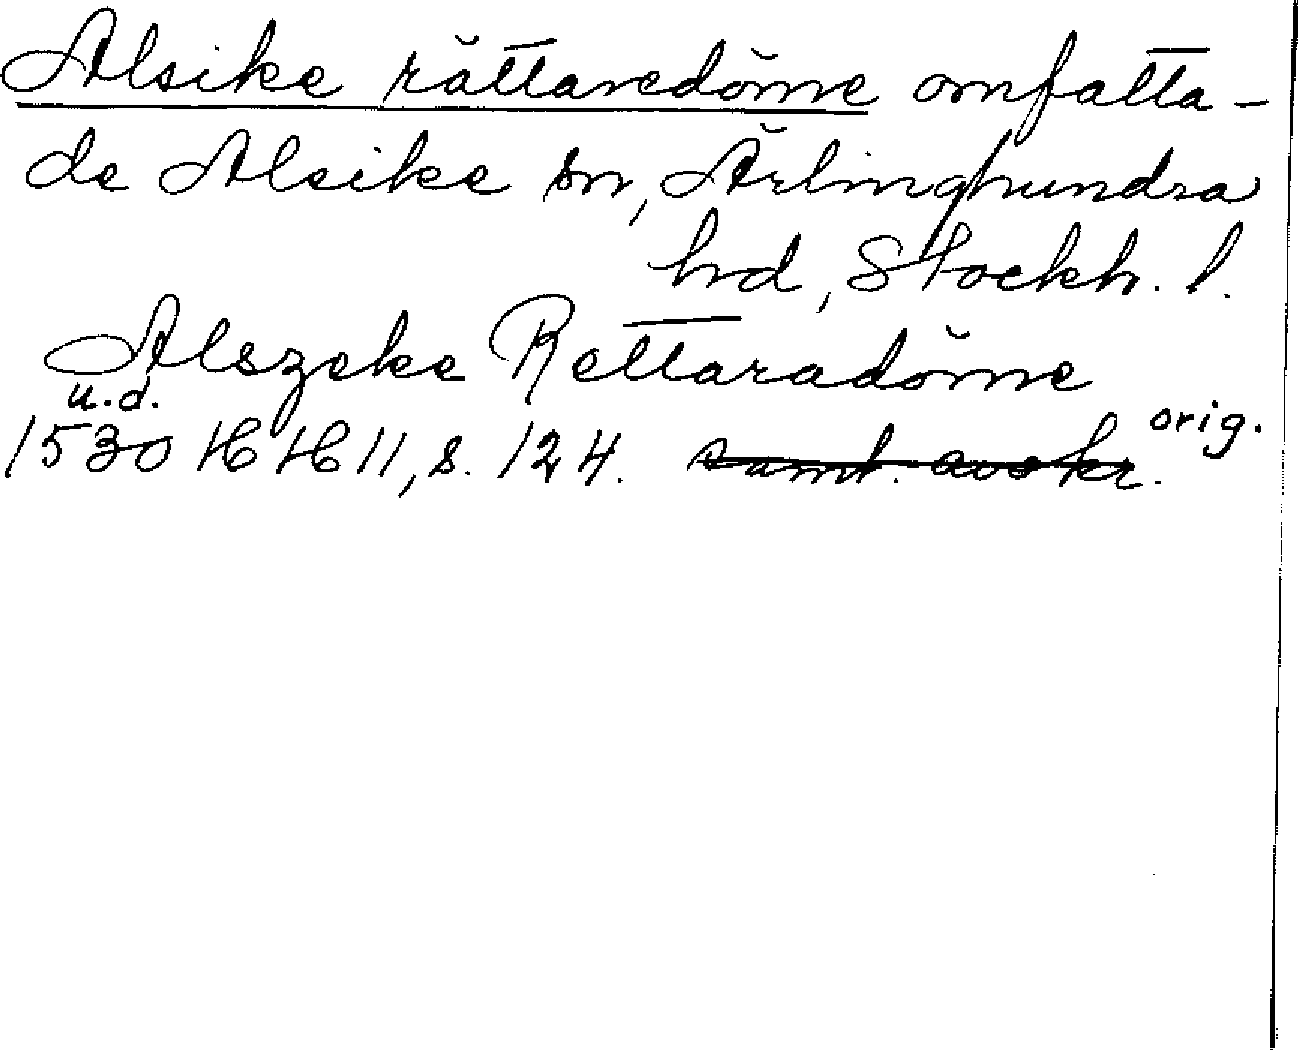 Alsike rättaredöme omfatta-
de Alsike sn, Ärlinghundra
hrd, Stockh. l.
Alszeke Rettaradöme
u.d.
1530 HH 11, s. 124. samt. avskr. orig.